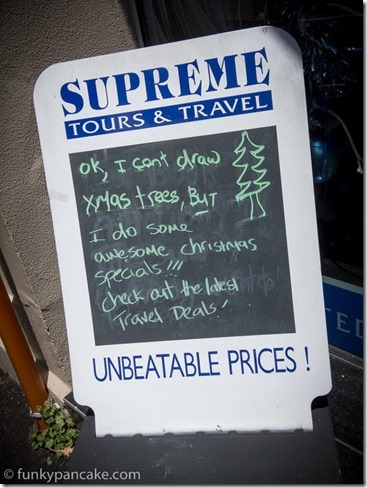 SUPREME
TOURS & TRAVEL
OK, I can't draw
Xmas trees, BUT
I do some
awesome christmas
specials!!!
Check out the latest
Travel Deals!
UNBEATABLE PRICES !
TED
© funkypancake.com